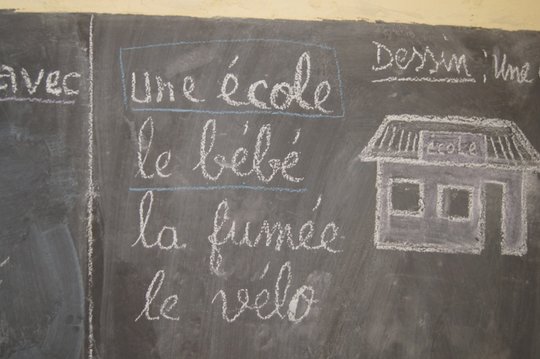 avec
une école
le bébé
la fumée
le vélo
Dessin : Une
école